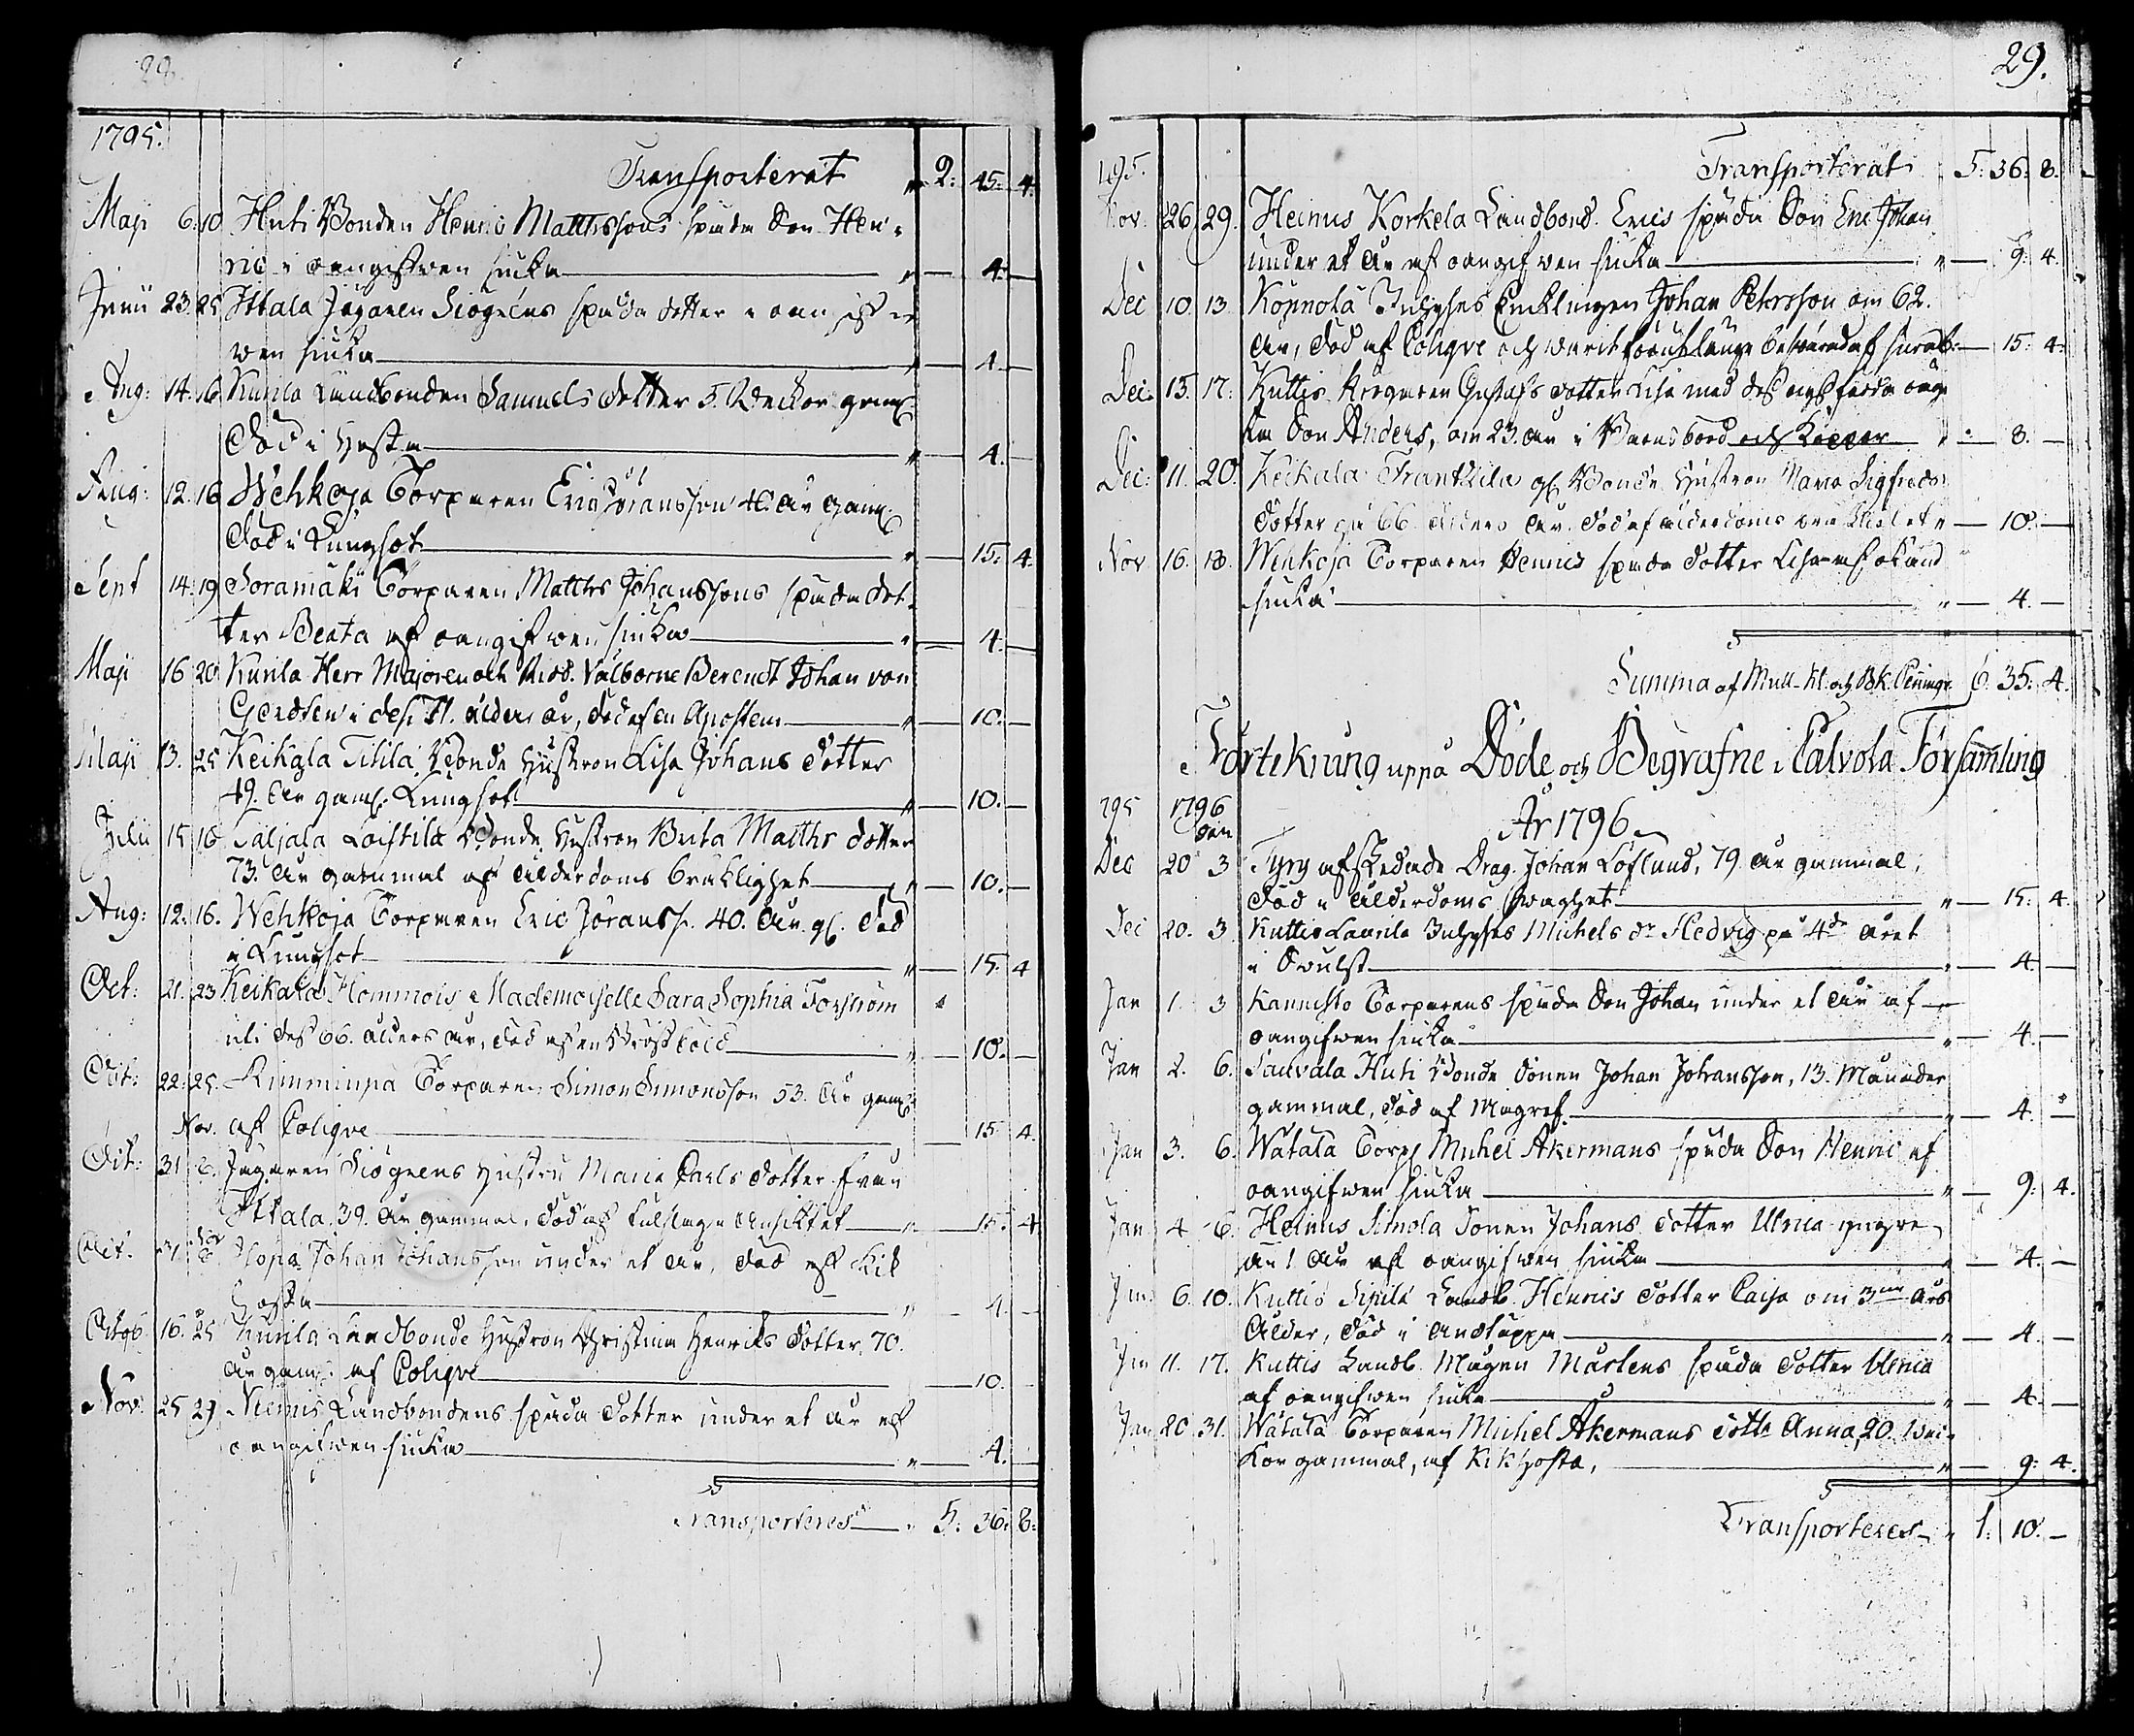 28.
1795.
Transporterat " 2: 45: 4.
Maji 6. 10 Huti Bonden Henric Matthssons späda Son Hen-
ric i oangifwen siuka " — 4. —
Junii 23. 25 Ittala Jägaren Siögréns späda dotter i oangif-
wen siuka " — 4 —
Aug: 14. 16 Kurila Landbonden Samuels dotter 5. Weckor gam.
död i Hosta " — 4. —
Aug: 12. 16 Wehkoja Torparen Eric Jöransson 40. År gam.
död i Lungsot " — 15. 4.
Sept 14. 19 Soramäki Torparen Matths Johanssons späda dot-
ter Beata af oangifwen siuka " — 4. —
Maji 16 20 Kurila Herr Majoren och Ridd. Välborne Berendt Johan von
Gerdten i dess 71. ålders år, död af en Apostem " — 10. —
Maji 13. 25 Keikala Tiltila Bonde Hustron Lisa Johans dotter
49. År gam. Lungsot " — 10. —
Julii 15 18 Saljala Loistila Bonde Hustron Brita Matths dotter
73. År gammal af Ålderdoms bräklighet " — 10. —
Aug: 12. 16. Wehkoja Torparen Eric Jöranss. 40. År gl. död
i Lungsot " — 15. 4
Oct: 21. 23 Keikala Hommois Mademoiselle Sara Sophia Forström
uti dess 66. ålders år, död af en Bröstböld " — 10. —
Oct: 22. 25. Rimminpä Torparen Simon Simonsson 53. År gam.
Nov. af Colique — 15 4.
Oct: 31 6. Jägaren Siögrens Hustru Maria Carls dotter från
Ittala. 39. År gammal, död af fulslag i Ansiktet " — 15. 4
Oct. 31. Nov 6. Ilopä Johan Johansson under et År, död af Kik
Hosta " — 4. —
Octob 16. 25 Kurila Landbonde Hustron Christina Henrics dotter, 70.
År gam. af Colique — 10.
Nov. 25 29 Niemis Landbondens späda dotter under et år af
oangifwen siuka " — 4. —
Transporteres " 5: 36: 8:
29.
1795. Transporterat 5: 36: 8.
Nov. 26. 29. Heinus Korkela Landbond. Erics späda Son Eric Johan
under et År af oangifwen siuka " — 9: 4.
Dec 10. 13. Konnola Inhyses Encklingen Johan Petersson om 62.
År, död af Colique och warit förut länge beswärad af — 15: 4:
Dec. 15. 17: Kuttis Krögaren Gustafs dotter Lisa med dess
Son Anders, om 23. År i Barnsbörd och " — 8. —
Dec: 11. 20. Keikala Franttila gl. Bonde Hustron Maria Sigfreds
dotter på 66 ålders År. död af ålderdoms bräklighet " — 10. —
Nov. 16. 18. Wehkoja Torparen Hennes späda dotter Lisa af okänd
siuka " — 4. —
Summa af Mull- Kl: och Bk. Penninge 6. 35: 4.
Förtekning uppå Döde och Begrafne i Calvola Församling
795 1796
Jan År 1796
Dec 20 3 Tyry afskedade Drag. Johan Löflund, 79 år gammal,
död i Ålderdoms swaghet " — 15: 4.
Dec 20. 3. Kuttis Laurila Inhyses Michels dr Hedvig på 4de året
i Swulst " — 4. —
Jan 1. 3 Kannisto Torparens späda Son Johan under et År af
oangifwen siuka " — 4. —
Jan 2. 6. Sauvala Huti Bonde Sonen Johan Johansson, 13. Månader
gammal, död af Magref " — 4. —
Jan 3. 6. Watala Torp. Michel Åkermans späda Son Henric af
oangifwen siuka " — 9: 4.
Jan 4. 6. Heinus Simola Sonen Johans dotter Ulrica yngre
än 1 År af oangifwen siuka " — 4. —
Jan. 6. 10. Kuttis Sipilä Landb. Henrics dotter Caisa om 3ne Års
Ålder, död i Andtäppa " — 4. —
Jan 11. 17. Kuttis Landb. Mågen Mårtens späda dotter Ulrica
af oangifwen siuka " — 4. —
Jan 20 31. Watala Torparen Michel Åkermans dottr Anna, 20. Wec-
kor gammal, af Kikhosta, " — 9: 4.
Transporteres " 1: 10. —